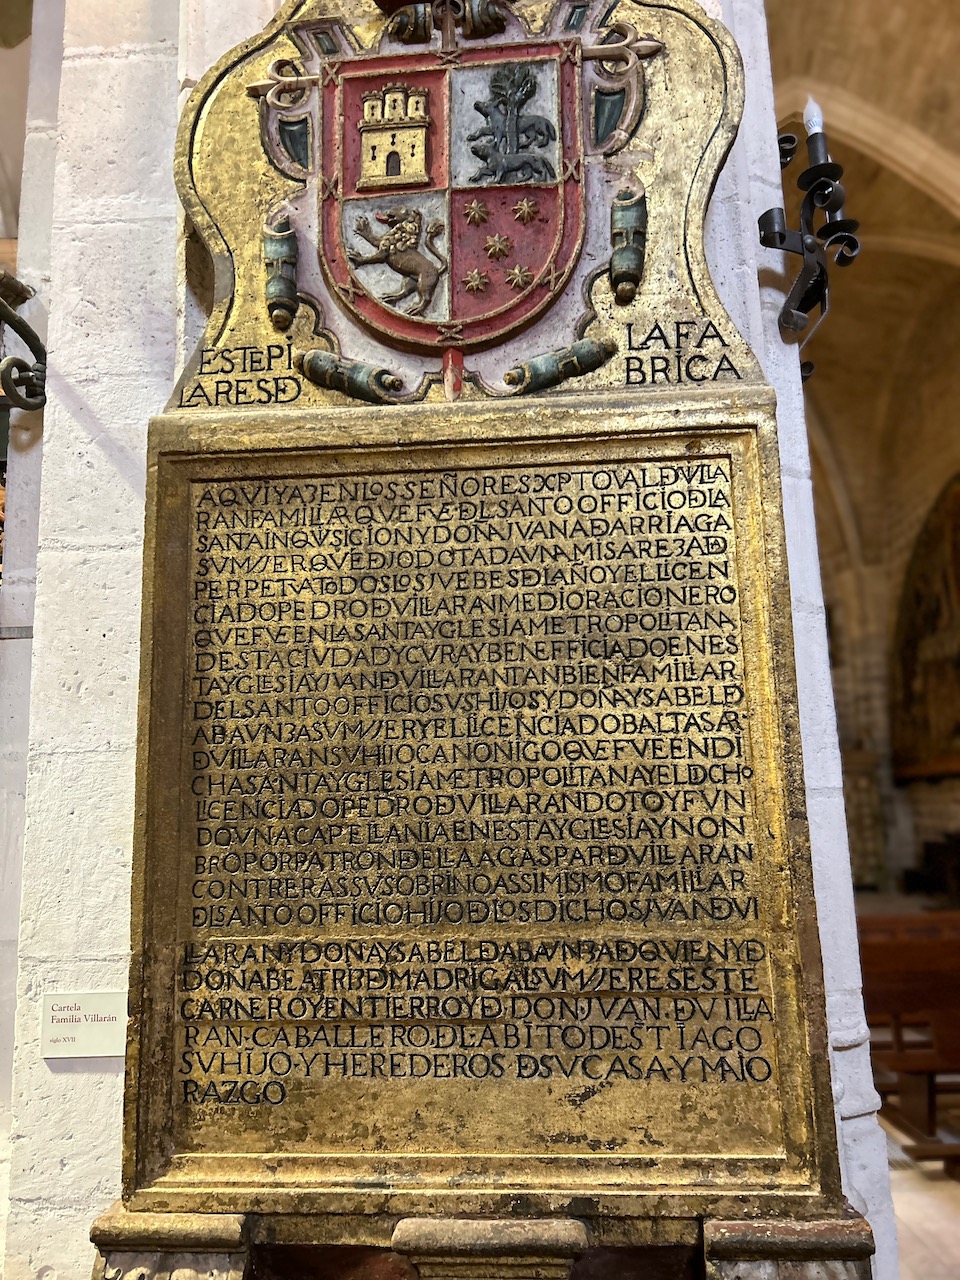 ESTEPI
LARESD
LAFA
BRICA
AQVIYAZENLOSSEÑORESXPTOVALDVILLA
RANFAMILIARQVEFVE·DLSANTOOFFICIODLA
SANTAINQVISICIONYDOÑAJVANADARRIAGA
SVMVJERQVEDJODOTADAVNAMISAREZADA
PERPETVATODOSLOSJVEBESDLAÑOYELLICEN
CIADOPEDRODVILLARANMEDIORACIONERO
QVEFVEENLASANTAYGLESIAMETROPOLITANA
DESTACIVDADYCVRAYBENEFFICIADOENES
TAYGLESIAYJVANDVILLARANTANBIENFAMILLAR
DELSANTOOFFICIOSVSHIJOSYDOÑAYSABELD
ABAVNZASVMVJERYELLICENCIADOBALTASAR·
DVILLARANSVHIJOCANONIGOQVEFVEENDI
CHASANTAYGLESIAMETROPOLITANAYELDICHO
LICENCIADOPEDRODVILLARANDOTOYFVN
DOVNACAPELLANIAENESTAYGLESIAYNON
BROPORPATRONDELLAAGASPARDVILLARAN
CONTRERASSVSOBRINOASSIMISMOFAMILIAR
DLSANTOOFFICIOHIJODLOSDICHOSJVANDVI
LLARANYDONAYSABELDABAVNZADQVIENYD
DONABEATRIZDMADRIGALSVMVJERESESTE
CARNEROYENTIERROYD·DONJVAN·DVILLA
RAN·CABALLERO·DLABITODESTIAGO
SVHIJO·YHEREDEROS·DSVCASA·YMAIO
RAZGO
Cartela
Familia Villarán
siglo XVII